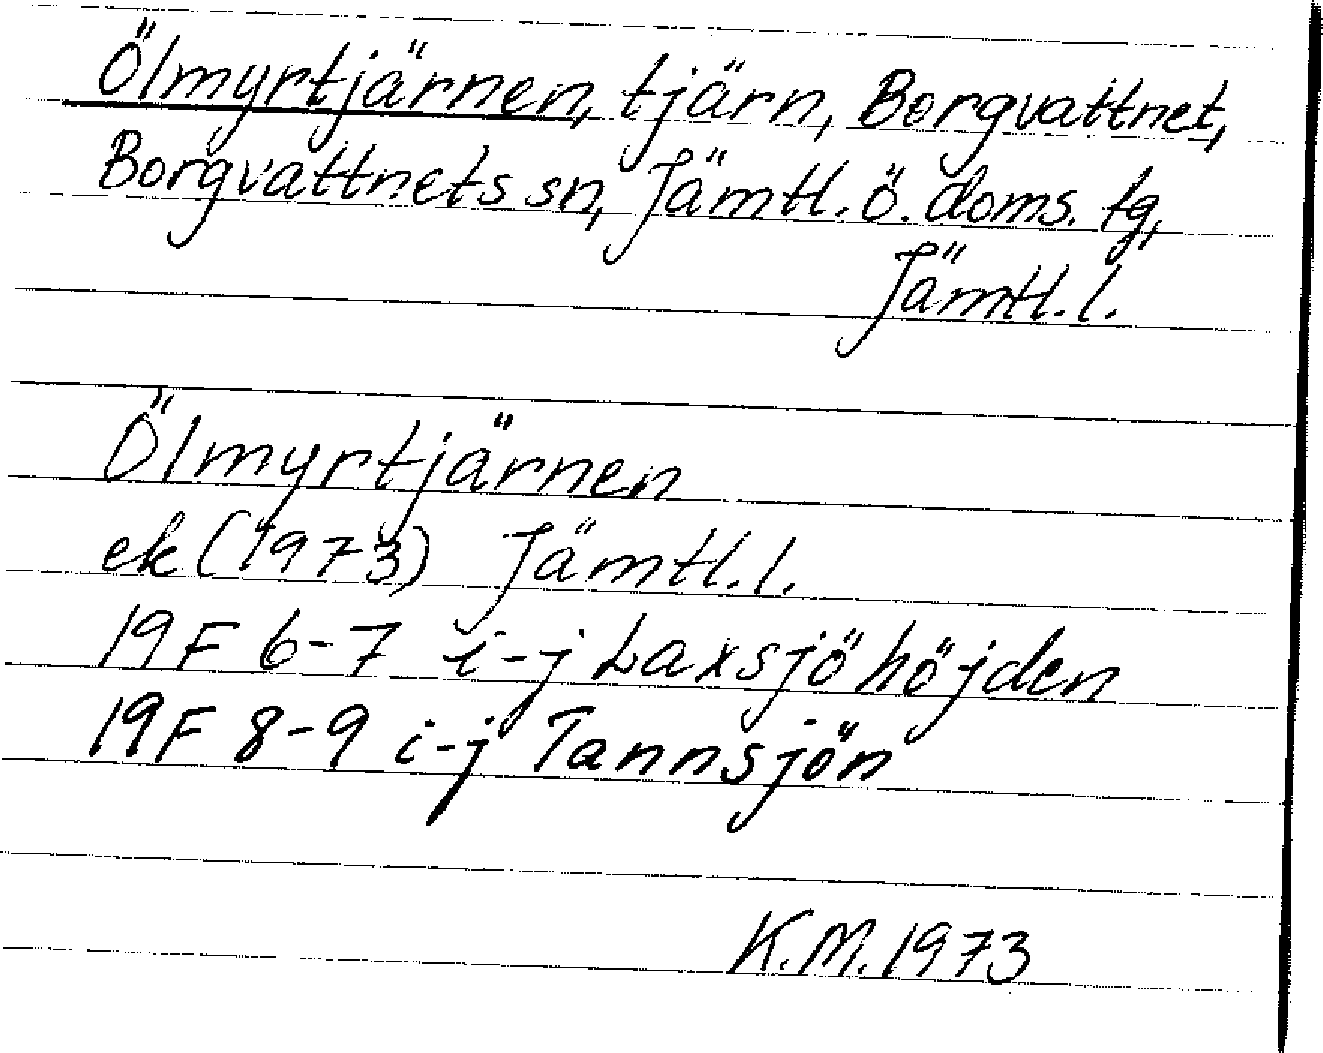 Ölmyrtjärnen, tjärn, Borgvattnet,
Borgvattnets sn, Jämtl. ö. doms. tg,
Jämtl. l.
Ölmyrtjärnen
ek (1973) Jämtl. l.
19F 6-7 i-j Laxsjöhöjden
19F 8-9 i-j Tannsjön
K.M. 1973